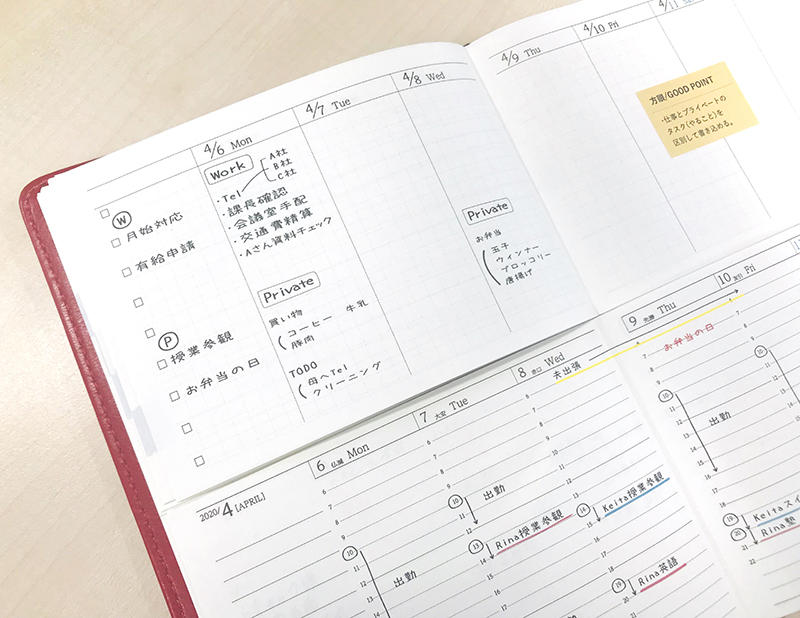 4/6 Mon
4/7 Tue
4/8 Wed
4/9 Thu
4/10 Fri
4/11
W
月始対応
有給申請
P
授業参観
お弁当の日
Work
・Tel
A社
B社
C社
・課長確認
・会議室手配
・交通費精算
・Aさん資料チェック
Private
買い物
コーヒー 牛乳
豚肉
TODO
母へTel
クリーニング
Private
お弁当
玉子
ウィンナー
ブロッコリー
唐揚げ
方眼/GOOD POINT
・仕事とプライベートの
タスク(やること)を
区別して書き込める。
2020/4 [APRIL]
6 仏滅 Mon
7 大安 Tue
8 赤口 Wed
9 先勝 Thu
10 友引 Fri
6
7
8
9
10
11
12
出勤
6
7
8
9
10
11
12
13
14
15
16
17
出勤
Rina授業参観
夫出張
14
15
Keita授業参観
19
20
21
Rina英語
6
7
お弁当の日
8
9
10
11
12
13
14
15
16
出勤
19
Keitaスイ
20
Rina塾
21
22
6
7
8
9
10